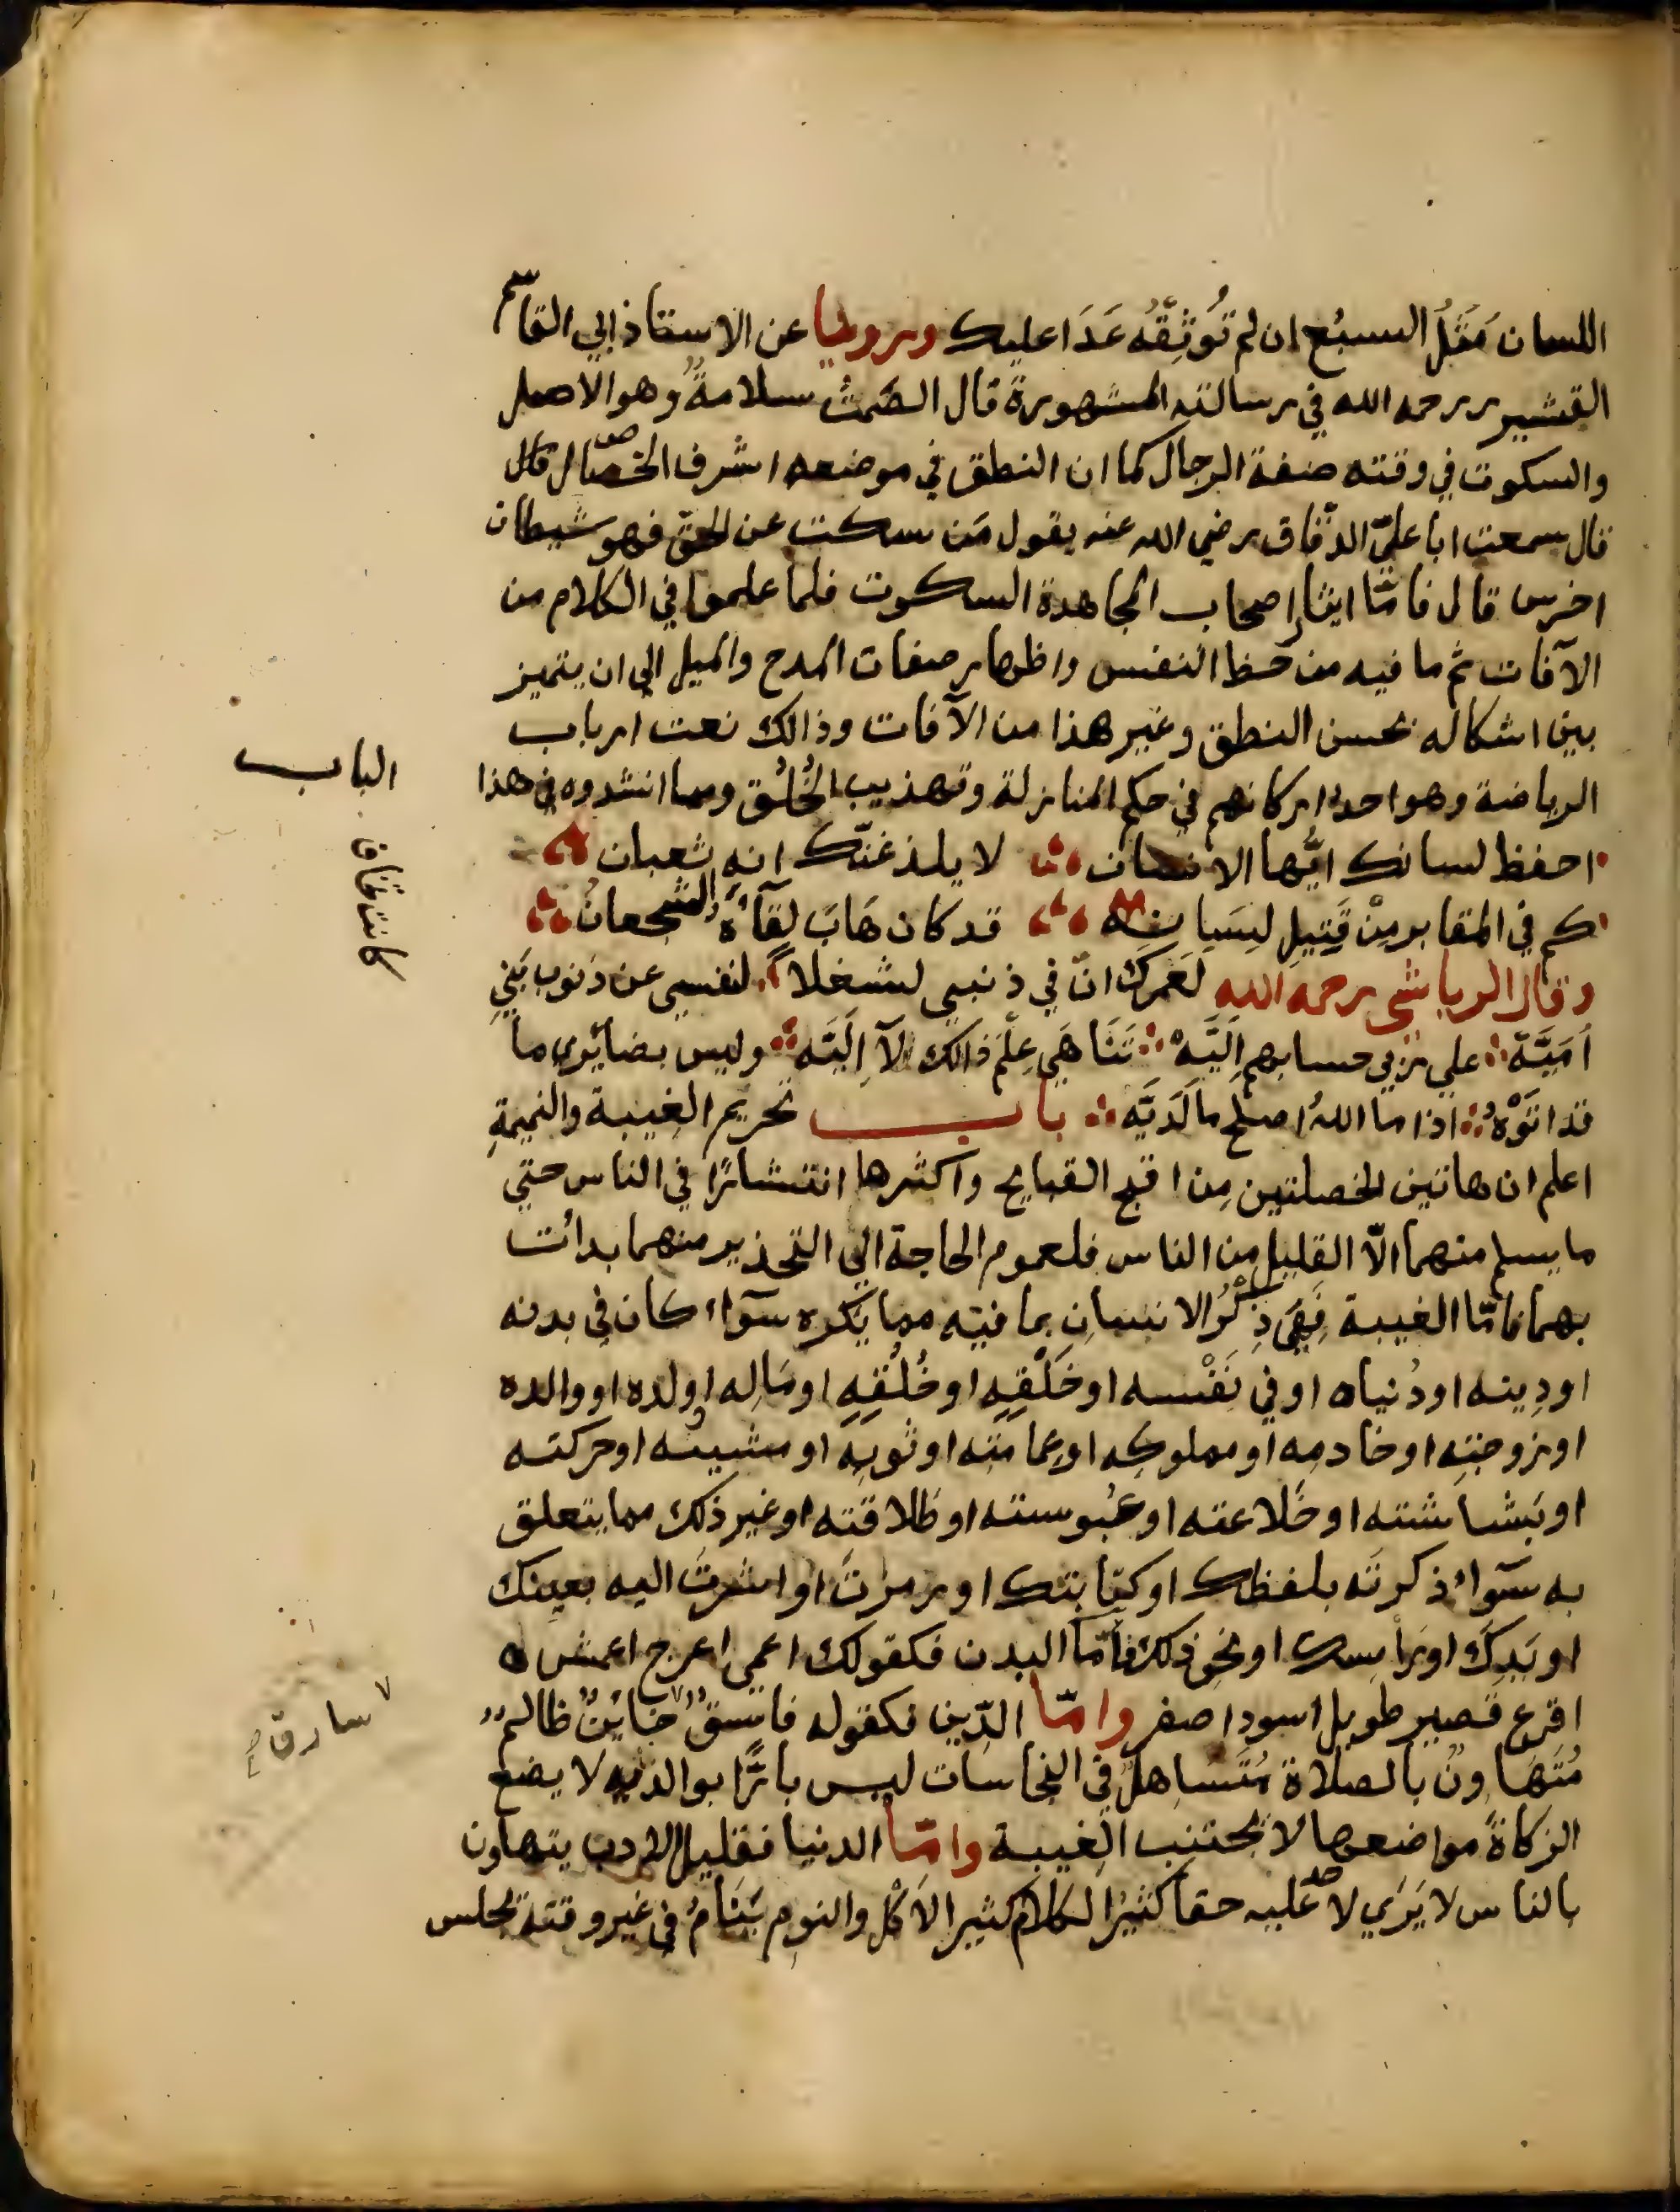 اللسان مَثَلُ السبُع ان لم تُوَثِقْهُ عَدَا عليك وروينا عن الاستاذ ابي القاسم
القشيري رحمه الله في رسالته المشهورة قال الصَمت سلامةٌ وهو الاصل
والسكوت في وقته صفة الرجال كما ان النطق في موضعه اشرف الخصال قال
قال سمعت ابا عليّ الدقّاق رضي الله عنه يقول مَن سكت عن الحق فهو شيطان
اخرس قال فامّا ايثار اصحاب المجاهدة السكوت فلما علموا في الكلام من
الآفات ثم ما فيه من حظ النفس واظهار صفات المدح والميل الى ان يتميز
بين اشكاله بحسن النطق وغير هذا من الآفات وذالك نعت ارباب
الرياضة وهو احد اركانهم في حكم المنازلة وتهذيب الخُلُق ومما انشدوه في هذا
الباب
احفظ لسانك ايُّها الانسان لا يلدغنّك انه ثعبان
كم في المقابر مِنْ قَتِيلِ لِسَانِه قد كان هَابَ لِقآءَهُ الشجعانُ
كانت تخاف
وقال الرياشي رحمه الله لَعَمرك انّ في ذنبي لشغلا لنفسي عن ذنوب بَنِي
أمَيَّةْ علي ربي حسابهم اِلَيَّهْ تَنَاهَي عِلْمُ ذالك لآ اِلَيَّه وليس بضائري ما
قد اتَوْهُ اذا ما اللهُ اصلح ما لَدَيَّه باب تحريم الغيبة والنميمةِ
اعلم ان هاتين الخصلتين مِن اقبح القبايح وأكثرها انتشارًا في الناس حتي
ما يسلم منهما الّا القليل من الناس فلعموم الحاجة الي التحذير منهما بدائت
بهما فامّا الغيبة فِهَيَ ذِكْرُ الانسانِ بما فيه مما يَكره سَوآء كان في بدنه
او دِينه او دُنياه او في نَفْسه او خَلْقِهِ او خُلُقِهِ او مَالِه او ولده او والده
او زوجتِه او خادمِه او مملوكِه او عِمامتِه او ثوبِه او مشيته او حركته
او بَشاشته او خَلاعته او عُبوسته او طَلاقته او غير ذلك مما يتعلق
به سَوآء ذكرته بلفظك او كتابتك او رمزتَ او اشرتَ اليه بعينك
او يَدِكَ او رَاسك او نحو ذلك فأمّا البدن فكقولك اعمي اعرج اعمش
اقرع قصير طويل اسود اصفر وامّا الدّين فكقوله فاسقٌ خائنٌ ظالمٌ
سارق صح
مُتَهَاونٌ بالصلاة مُتَساهلٌ في النجاسات ليس بارًّا بوالديه لا يضع
الزكاةَ مواضعها لا يجتنب الغيبة وامّا الدنيا فقليل الادب يتهاون
بالناس لا يَرَي لاحد عليه حقا كثيُر الكلام كثير الاَكْل والنوم يَنَامُ في غير وقته يجلس